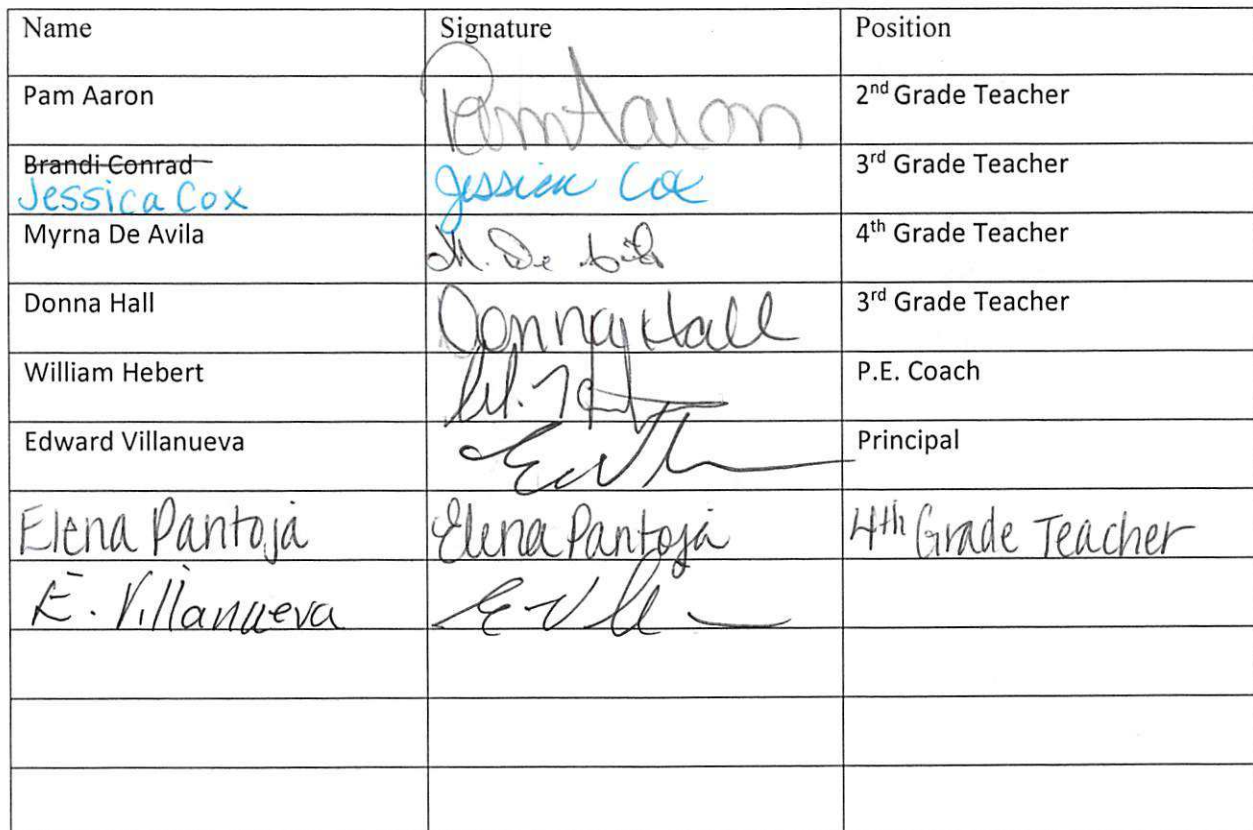 Name Signature Position
Pam Aaron Pam Aaron 2nd Grade Teacher
Brandi Conrad 3rd Grade Teacher
Jessica Cox Jessica Cox
Myrna De Avila M. De Avila 4th Grade Teacher
Donna Hall Donna Hall 3rd Grade Teacher
William Hebert P.E. Coach
Edward Villanueva Principal
Elena Pantoja Elena Pantoja 4th Grade Teacher
E. Villanueva